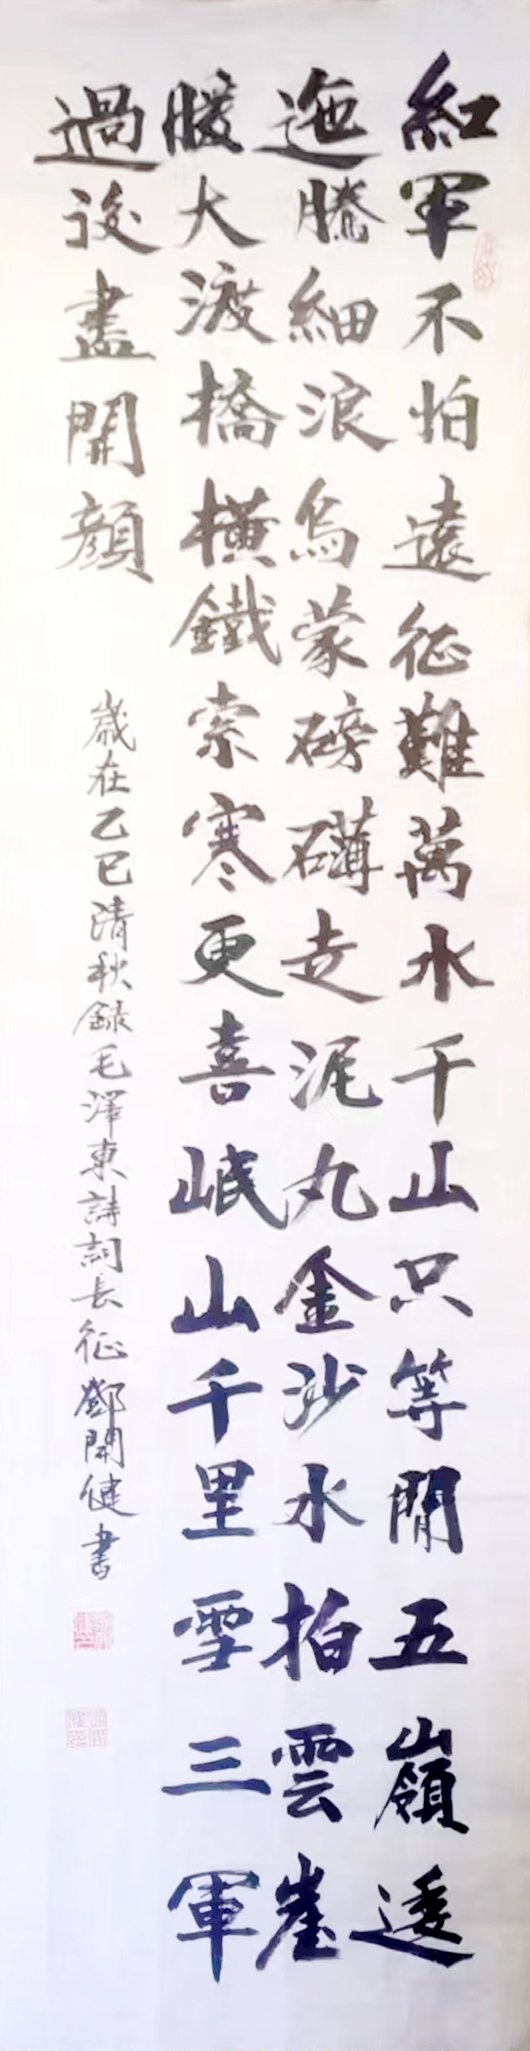 紅軍不怕遠征難萬水千山只等閒五嶺逶
迤騰細浪烏蒙磅礴走泥丸金沙水拍雲崖
暖大渡橋橫鐵索寒更喜岷山千里雪三軍
過後盡開顏
歲在乙巳清秋録毛澤東詩詞長征鄧開健書